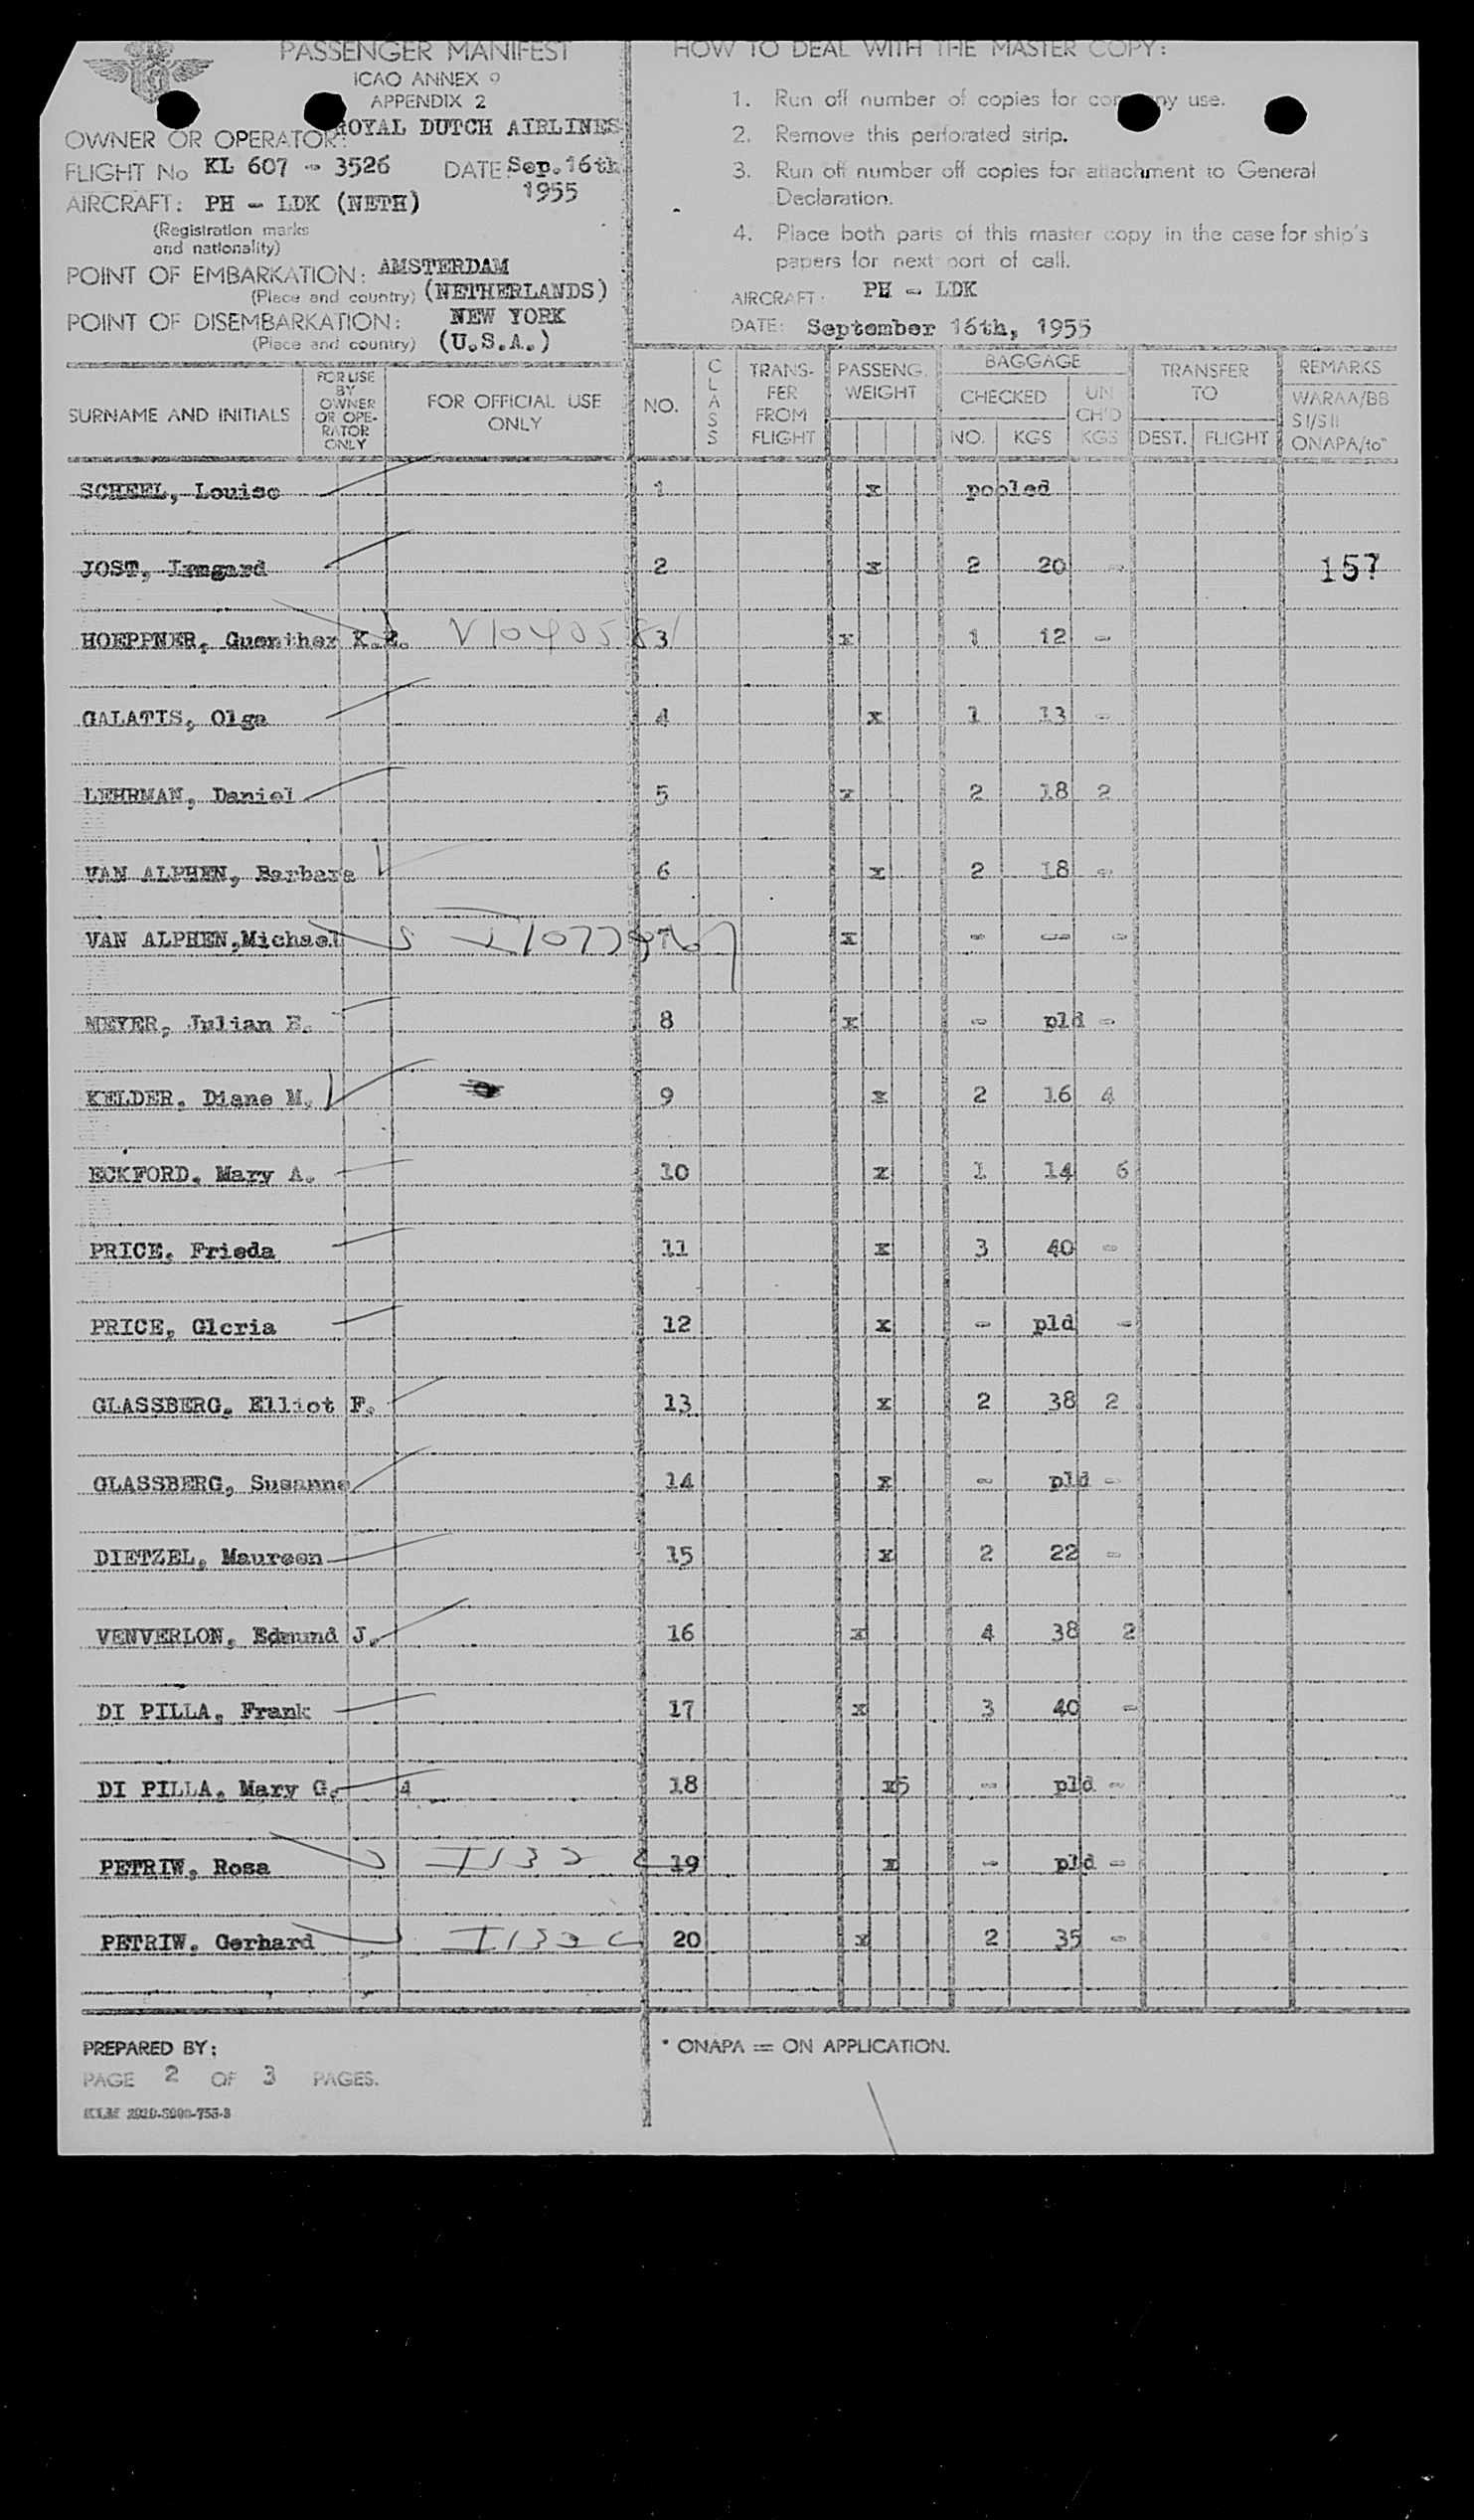 PASSENGER MANIFEST
ICAO ANNEX 9
APPENDIX 2
OWNER OR OPERATOR: ROYAL DUTCH AIRLINES
FLIGHT No KL 607 - 3526 DATE: Sep. 16th
1955
AIRCRAFT: PH - LDK (NETH)
(Registration marks
and nationality)
POINT OF EMBARKATION: AMSTERDAM
(Place and country) (NETHERLANDS)
POINT OF DISEMBARKATION: NEW YORK
(Place and country) (U.S.A.)
HOW TO DEAL WITH THE MASTER COPY:
1. Run off number of copies for company use.
2. Remove this perforated strip.
3. Run off number off copies for attachment to General
Declaration.
4. Place both parts of this master copy in the case for ship's
papers for next port of call.
AIRCRAFT: PH - LDK
DATE: September 16th, 1955
SURNAME AND INITIALS
FOR USE
BY
OWNER
OR OPE-
RATOR
ONLY
FOR OFFICIAL USE
ONLY
NO.
CLASS
TRANS-
FER
FROM
FLIGHT
PASSENG.
WEIGHT
BAGGAGE
CHECKED
NO. KGS
UN
CH'D
KGS
TRANSFER
TO
DEST. FLIGHT
REMARKS
WARAA/BB
SI/SII
ONAPA/to*
SCHEEL, Louise 1 x pooled
JOST, Irmgard 2 x 2 20 - 157
HOEPPNER, Guenther K.R. 3 x 1 12 -
GALATIS, Olga 4 x 1 13 -
LEHRMAN, Daniel 5 x 2 18 2
VAN ALPHEN, Barbara 6 x 2 18 -
VAN ALPHEN,Michael 7 x - -- -
MEYER, Julian E. 8 x - pld -
KELDER, Diane M. 9 x 2 16 4
ECKFORD, Mary A. 10 x 1 14 6
PRICE, Frieda 11 x 3 40 -
PRICE, Gloria 12 x - pld -
GLASSBERG, Elliot F. 13 x 2 38 2
GLASSBERG, Susanne 14 x - pld -
DIETZEL, Maureen 15 x 2 22 -
VENVERLON, Edmund J. 16 x 4 38 2
DI PILLA, Frank 17 x 3 40 -
DI PILLA, Mary G. 4 18 x5 - pld -
PETRIW, Rosa I132 19 x - pld -
PETRIW, Gerhard 20 x 2 35 -
PREPARED BY:
PAGE 2 OF 3 PAGES.
* ONAPA = ON APPLICATION.